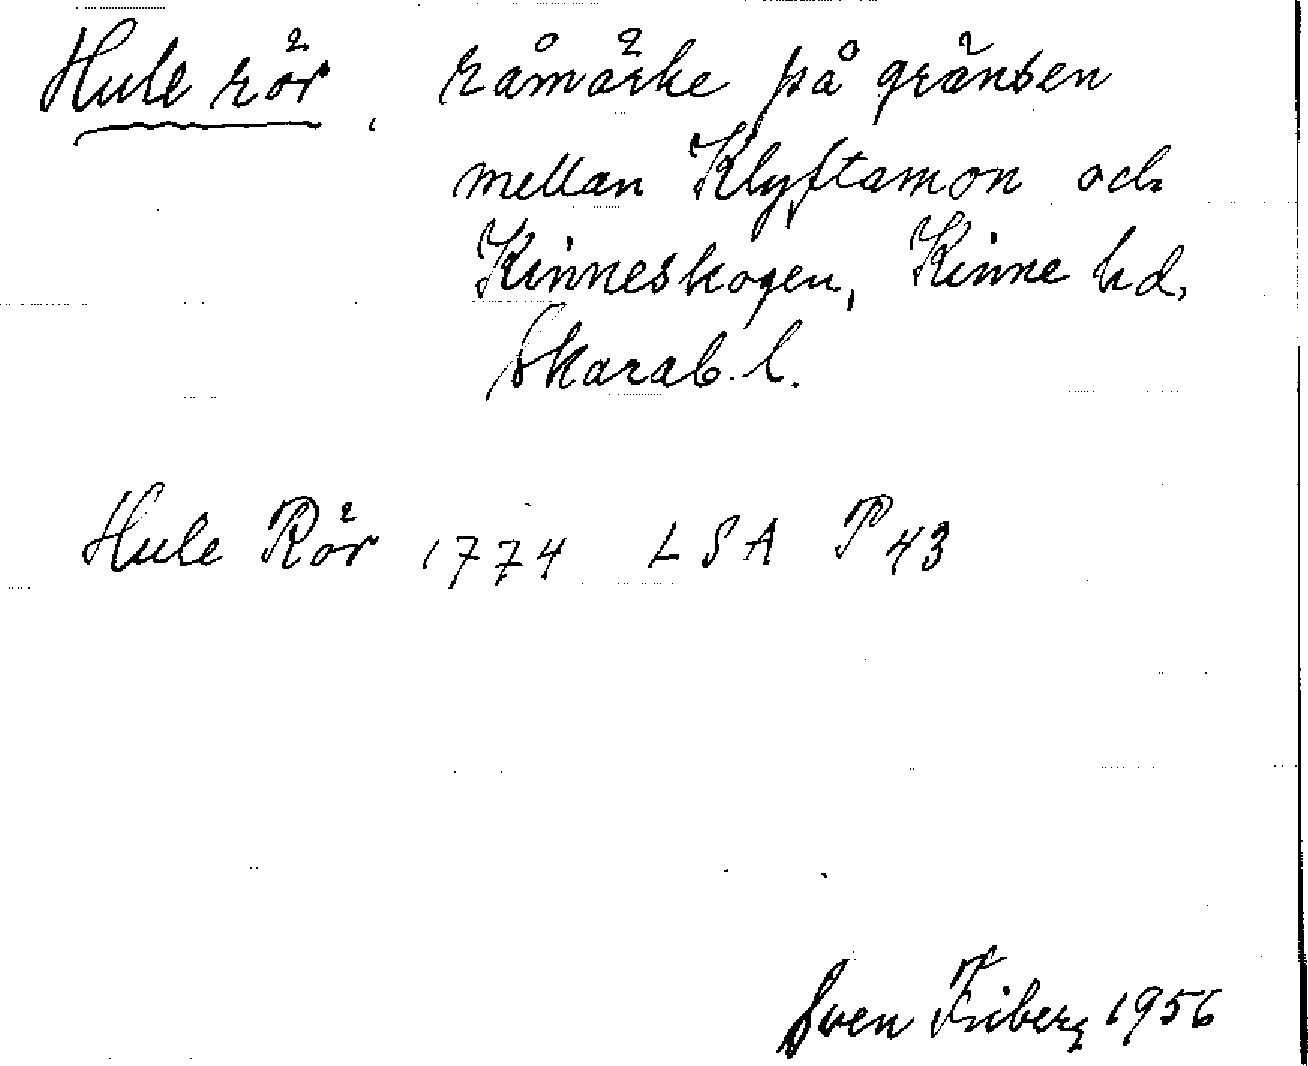 Hule rör, råmärke på gränsen
mellan Klyftamon och
Kinneskogen, Kinne hd,
Skarab. l.
Hule Rör 1774 LSA P 43
Sven Friberg 1956